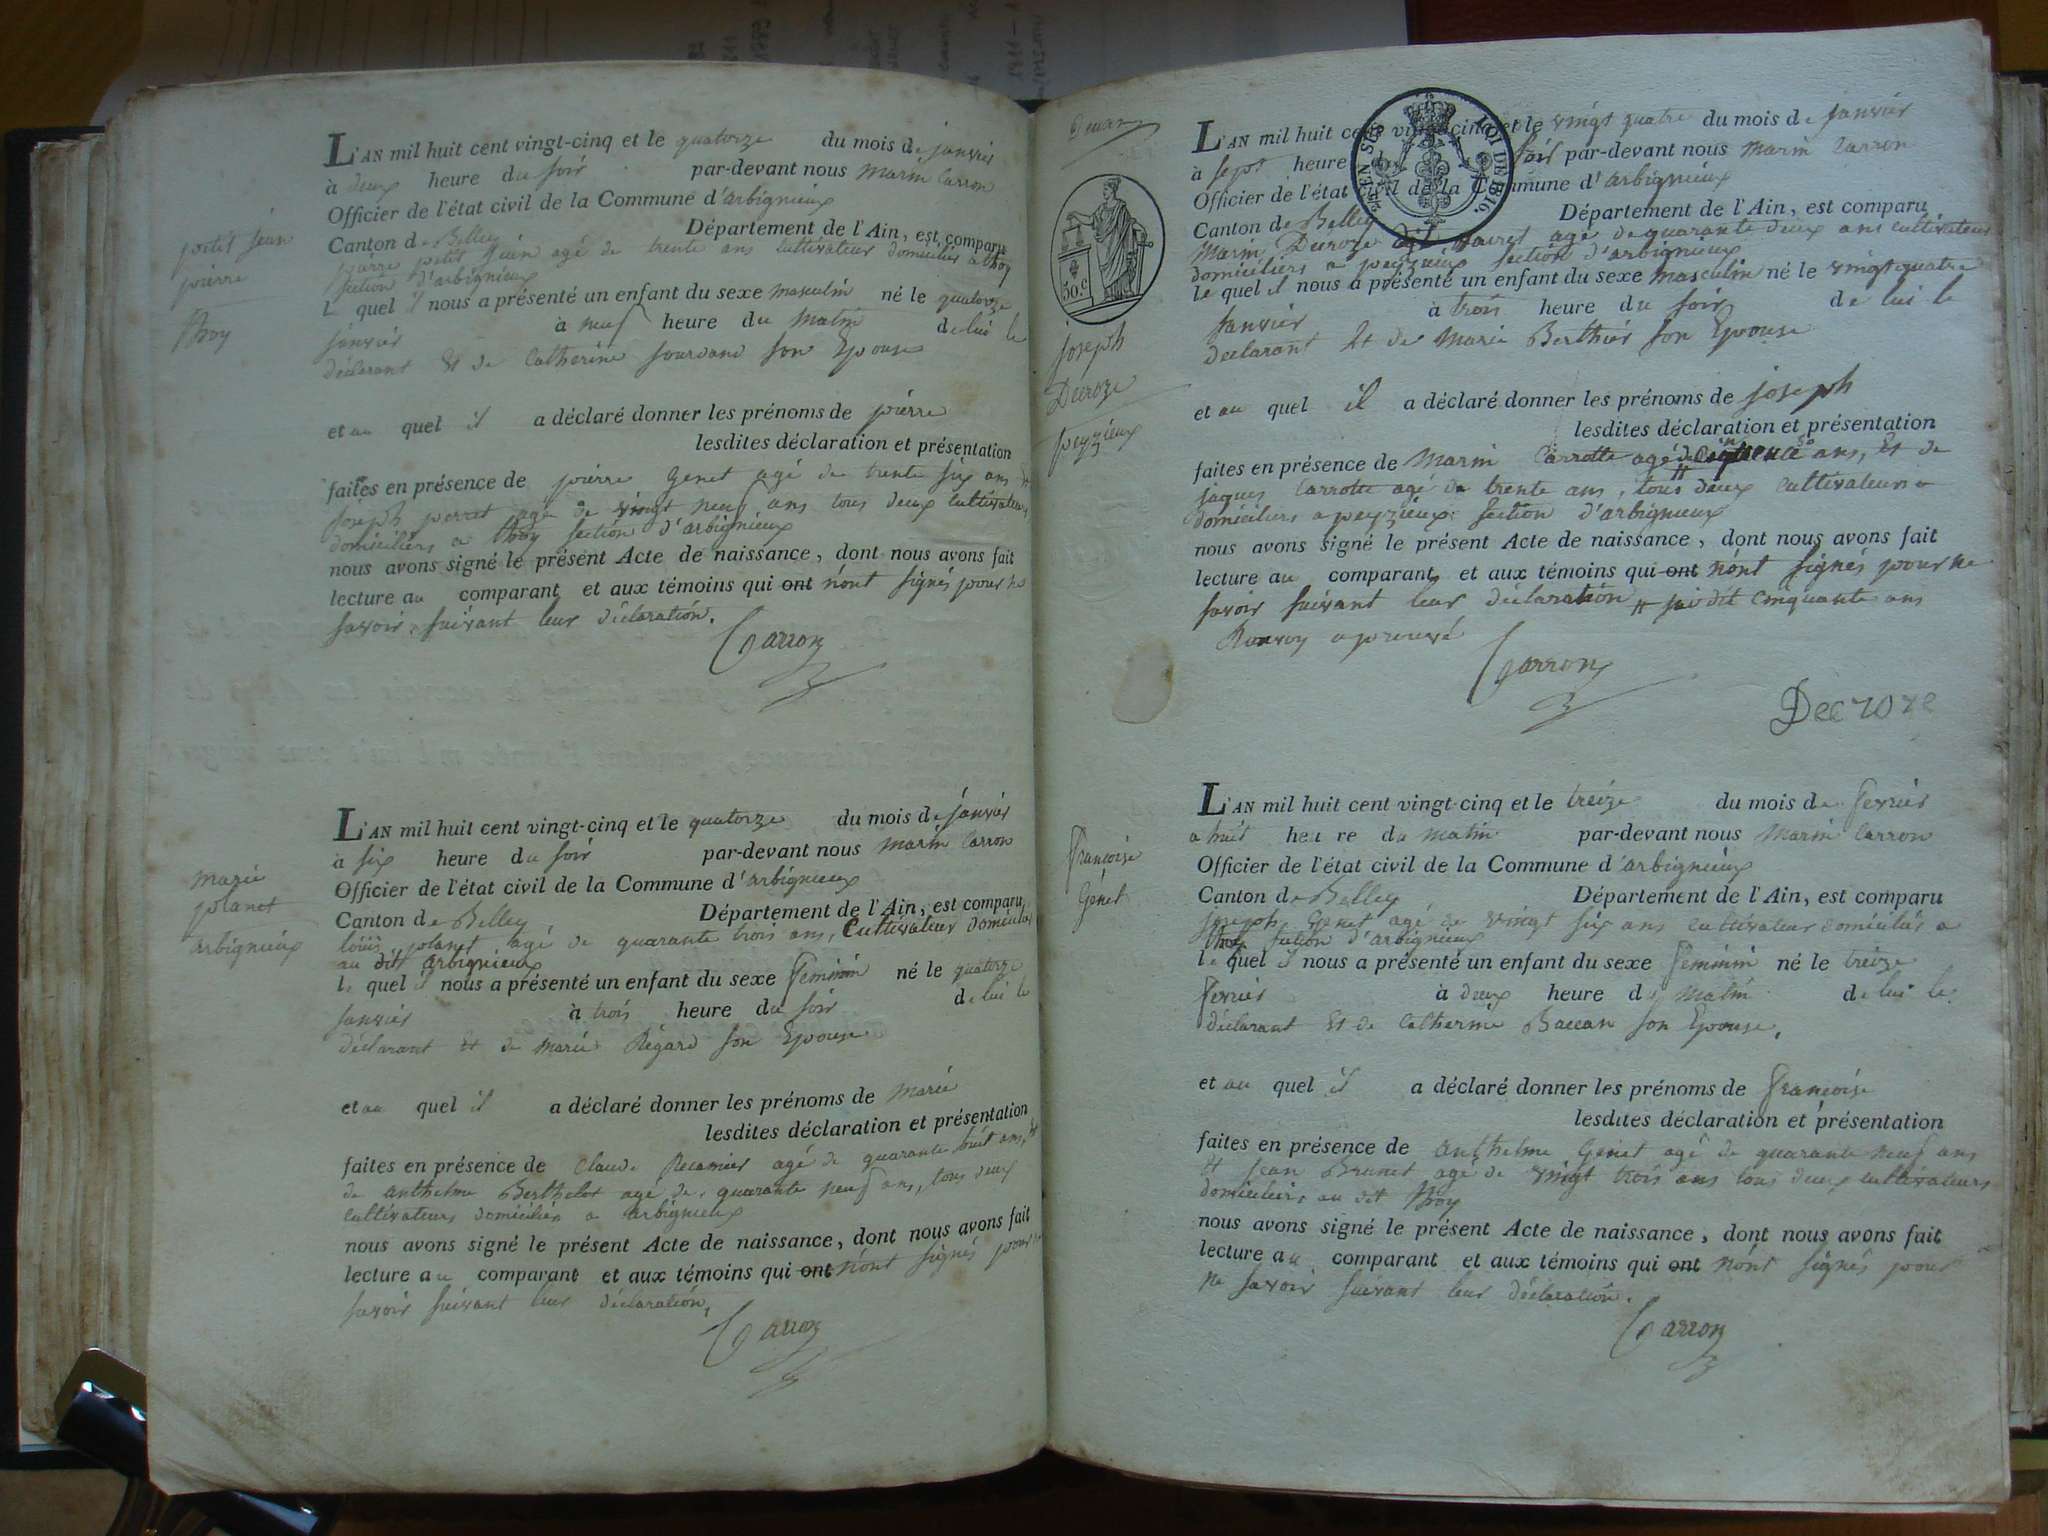 petit jean
pierre
thoy
L'AN mil huit cent vingt-cinq et le quatorze du mois de janvier
à deux heure du soir par-devant nous marin Carron
Officier de l'état civil de la Commune d'arbignieux
Canton de Belley Département de l'Ain, est comparu
pierre petit jean agé de trente ans cultivateur domicilié a thoy
section d'arbignieux
le quel il nous a présenté un enfant du sexe masculin né le quatorze
janvier à neuf heure du matin de lui le
déclarant et de Catherine jourdand son Epouse
et au quel il a déclaré donner les prénoms de pierre
lesdites déclaration et présentation
faites en présence de pierre Genet agé de trente six ans et
joseph perret agé de vingt neuf ans tous deux cultivateurs
domiciliers a thoy section d'arbignieux
nous avons signé le présent Acte de naissance, dont nous avons fait
lecture au comparant et aux témoins qui ont n'ont signés pour ne
savoir, suivant leur déclaration.
Carron
marie
planet
arbignieux
L'AN mil huit cent vingt-cinq et le quatorze du mois de janvier
à six heure du soir par-devant nous marin Carron
Officier de l'état civil de la Commune d'arbignieux
Canton de Belley Département de l'Ain, est comparu
louis planet agé de quarante trois ans, Cultivateur domicilié
au dit arbignieux
le quel il nous a présenté un enfant du sexe feminin né le quatorze
janvier à trois heure du soir de lui le
déclarant et de marie Régard son Epouse
et au quel il a déclaré donner les prénoms de marie
lesdites déclaration et présentation
faites en présence de Claude Recamier agé de quarante huit ans, et
de anthelme Berthelot agé de quarante neuf ans, tous deux
cultivateurs domiciliés a arbignieux
nous avons signé le présent Acte de naissance, dont nous avons fait
lecture au comparant et aux témoins qui ont n'ont signés pour ne
savoir suivant leur déclaration,
Carron
30.c
joseph
Décroze
peyzieux
LOI DE 1816.
L'AN mil huit cent vingt-cinq et le vingt quatre du mois de janvier
à sept heure soir par-devant nous marin Carron
Officier de l'état civil de la Commune d'arbignieux
Canton de Belley Département de l'Ain, est comparu
Marin Decroze dit agé de quarante deux ans cultivateur
domiciliers a peyzieux section d'arbignieux
le quel il nous a présenté un enfant du sexe masculin né le vingt quatre
janvier à trois heure du soir de lui le
declarant et de Marie Berthier son Epouse
et au quel il a déclaré donner les prénoms de joseph
lesdites déclaration et présentation
faites en présence de Marin Carrotte agé de ans, et de
jaques Carrotte agé de trente ans, tous deux cultivateurs
domiciliers a peyzieux section d'arbignieux
nous avons signé le présent Acte de naissance, dont nous avons fait
lecture au comparant et aux témoins qui ont n'ont signés pour ne
savoir suivant leur déclaration dit cinquante ans
Renvoy aprouvé
Carron
Decroze
francoise
Génet
L'AN mil huit cent vingt-cinq et le treize du mois de fevrier
a huit heure du matin par-devant nous marin Carron
Officier de l'état civil de la Commune d'arbignieux
Canton de Belley Département de l'Ain, est comparu
joseph Genet agé de vingt six ans cultivateur domicilié a
thoy section d'arbignieux
le quel il nous a présenté un enfant du sexe feminin né le treize
fevrier à deux heure du matin de lui le
déclarant et de Catherine Baccan son Epouse,
et au quel il a déclaré donner les prénoms de francoise
lesdites déclaration et présentation
faites en présence de anthelme Genet agé de quarante neuf ans
et jean Brunet agé de vingt trois ans tous deux cultivateurs
domiciliers au dit thoy
nous avons signé le présent Acte de naissance, dont nous avons fait
lecture au comparant et aux témoins qui ont n'ont signés pour
ne savoir suivant leur déclaration.
Carron